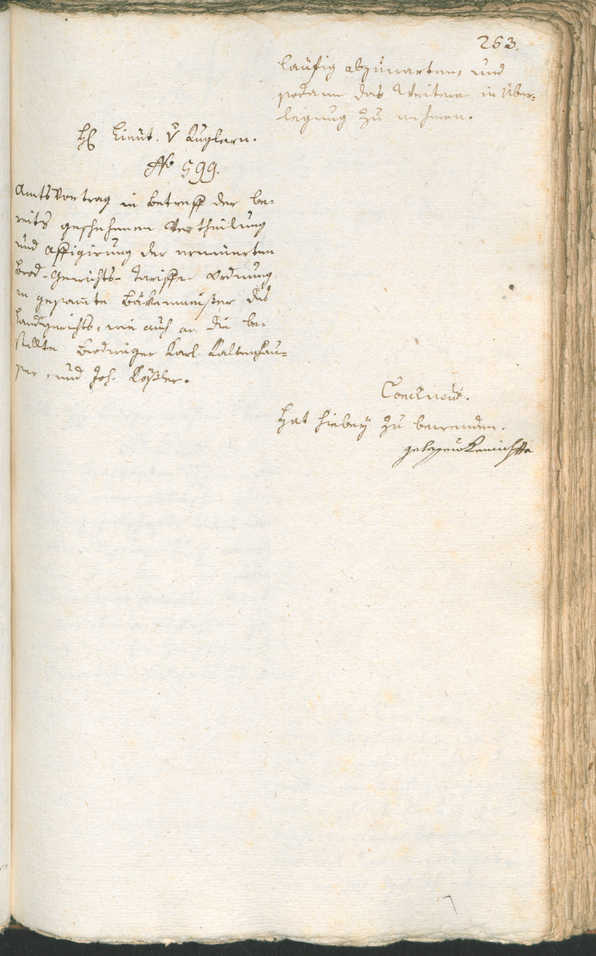 263.
läufig abzuwarten, und
sodann das Weitere in Über-
legung zu nehmen.
H Lieut. v Kuglern.
No 599.
Amtsvortrag in betreff der be-
reits geschehenen Vertheilung
und affigirung der erneuerten
Brod-Gerichts-Tariffe Ordnung
an gesamte Bäkenmeister des
Landgerichts, wie auch an die be-
stellte Brodwäger Karl Kaltenhau-
ser und Joh. Rößler.
Conclusum.
Hat hiebey zu bewenden.